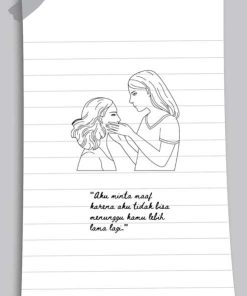 "Aku minta maaf
karena aku tidak bisa
menunggu kamu lebih
lama lagi."